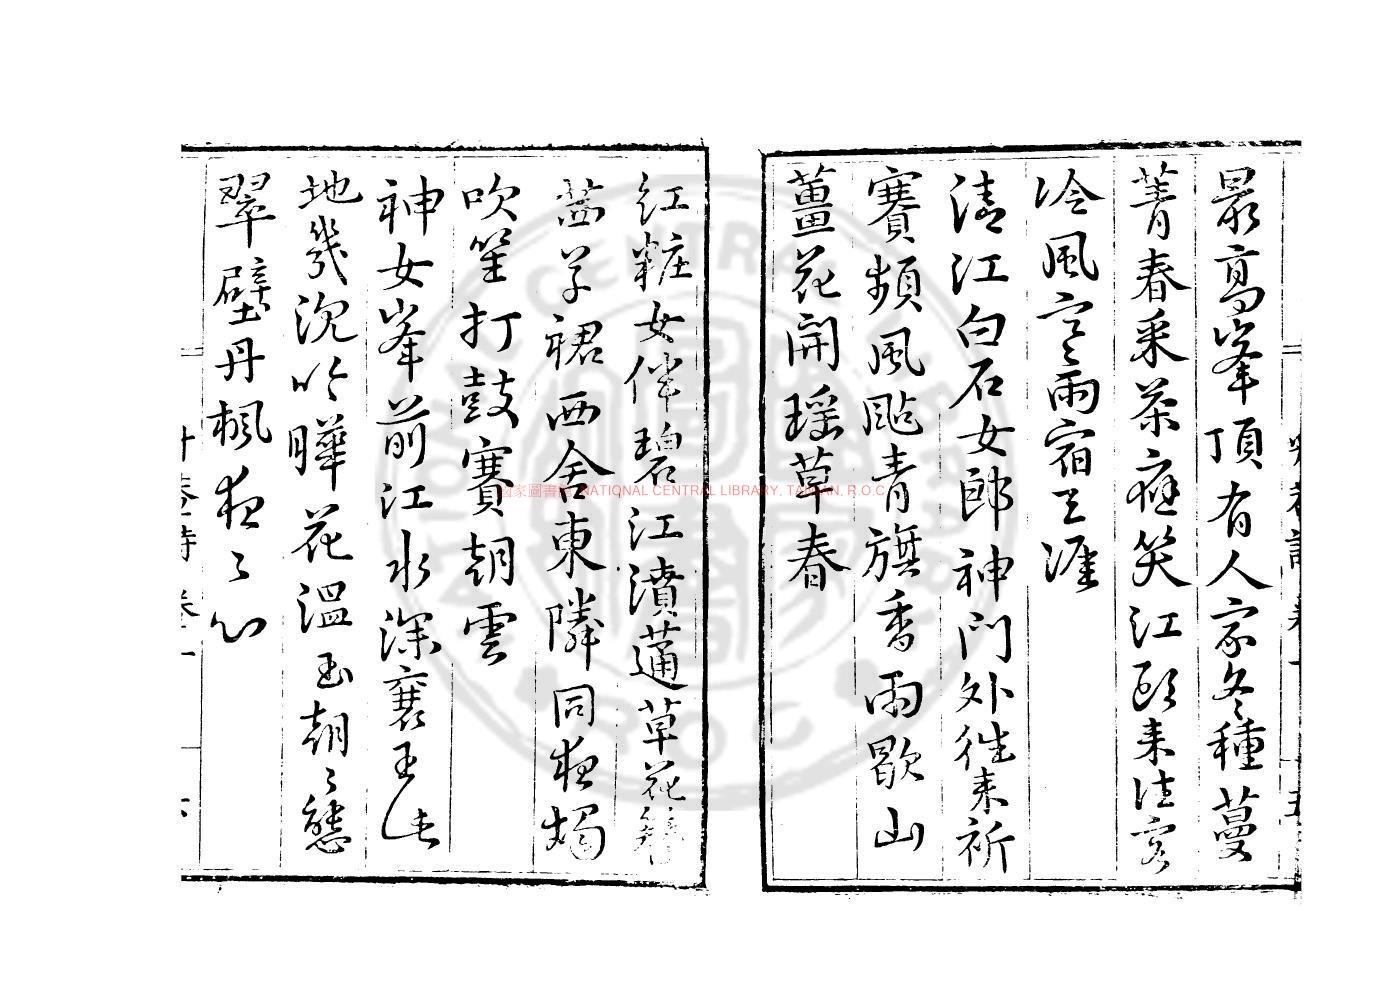 最高峯頂有人家冬種蔓
菁春采茶癡笑江頭來往客
冷風寒雨宿天涯
清江白石女郎神門外往來祈
賽頻風颭青旗香雨歇山
薑花開瑤草春
紅粧女伴碧江濆蓪草花簪
茜子裙西舍東隣同夜燭
吹笙打鼓賽朝雲
神女峯前江水深襄王此
地幾沉吟曄花溫玉朝〻態
翠壁丹楓夜〻心
國家圖書館 NATIONAL CENTRAL LIBRARY, TAIWAN, R.O.C